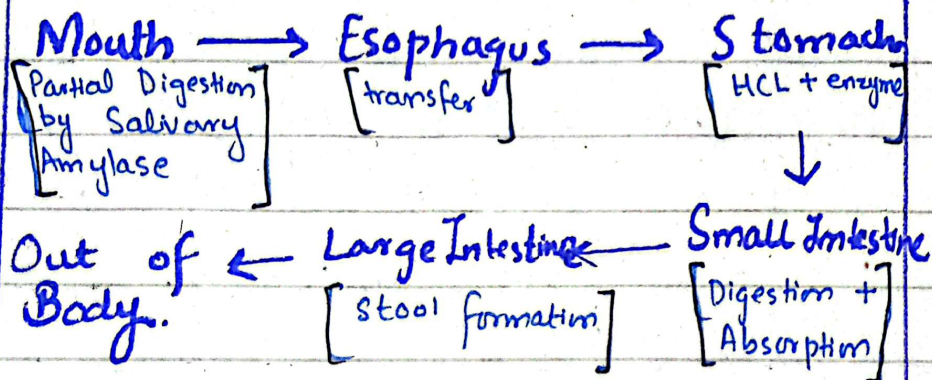 Mouth → Esophagus → Stomach
[Partial Digestion by Salivary Amylase] [transfer] [HCL + enzyme]
↓
Out of Body. ← Large Intestine ← Small Intestine
[Stool formation] [Digestion + Absorption]